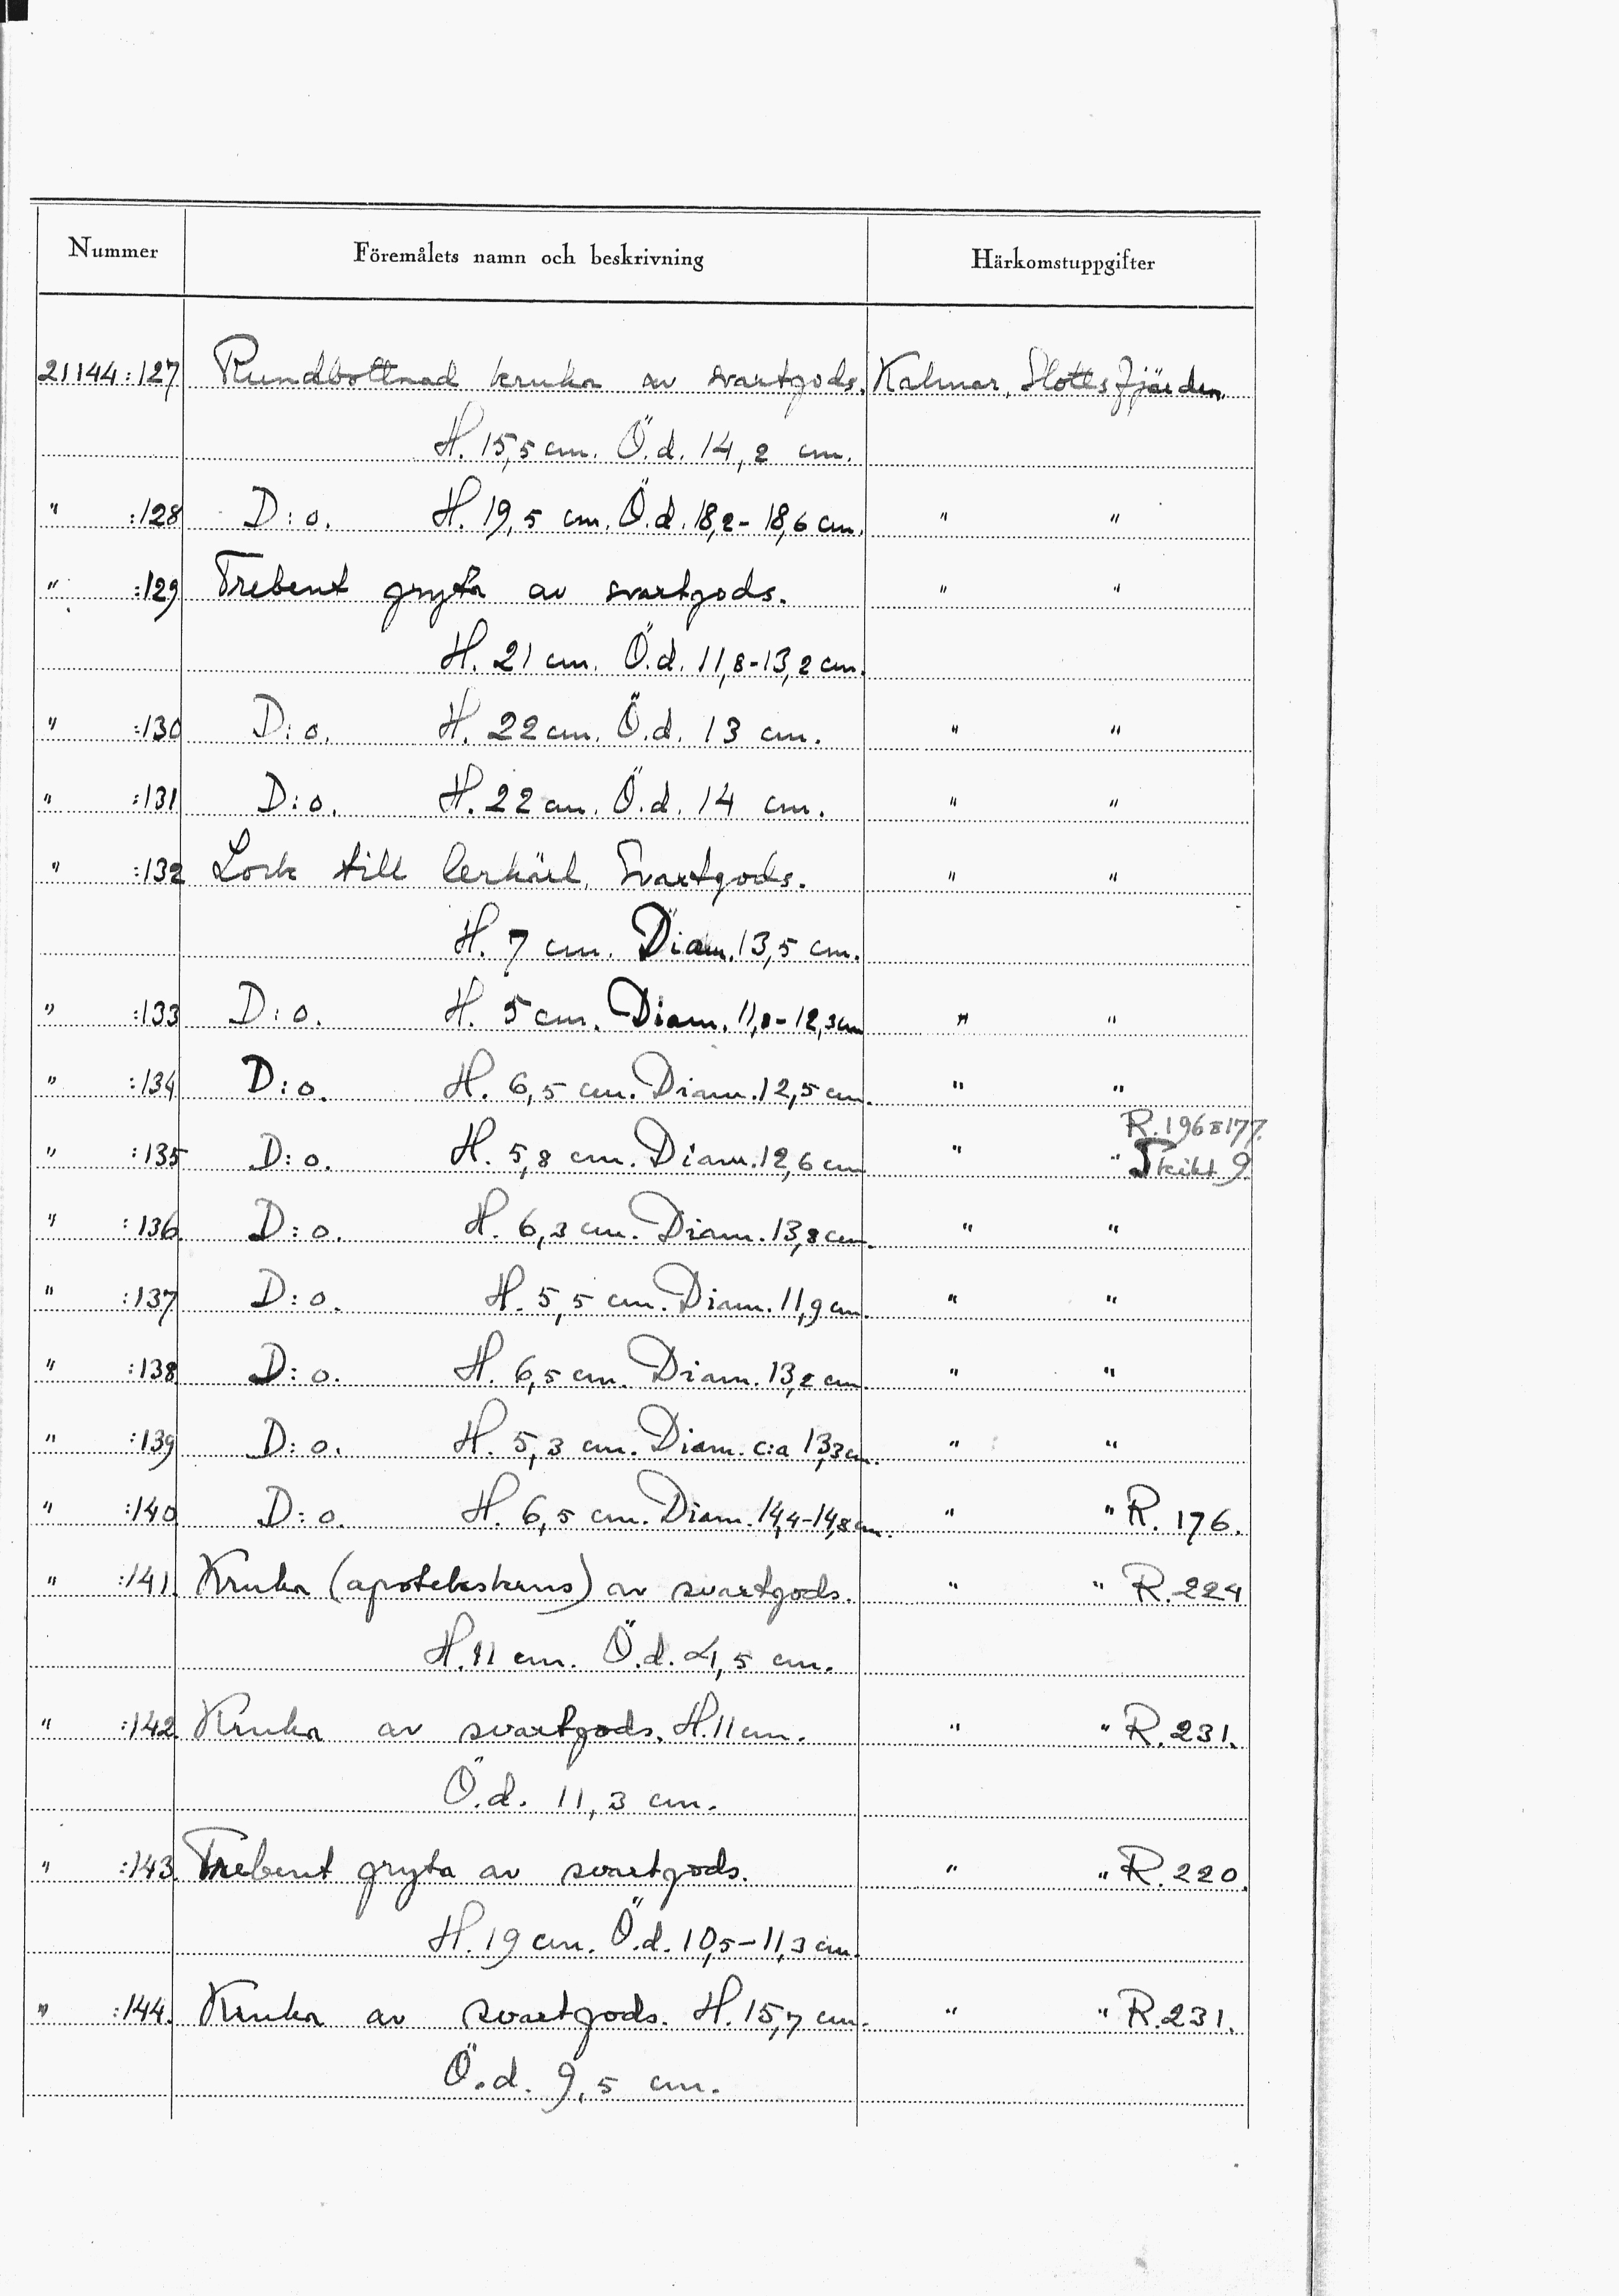 Nummer Föremålets namn och beskrivning Härkomstuppgifter
21144:127 Rundbottnad kruka av svartgods. Kalmar, Slottsfjärden.
H. 15,5 cm. Ö.d. 14,2 cm.
" :128 D:o. H. 19,5 cm. Ö.d. 18,2-18,6 cm. " "
" :129 Trebent gryta av svartgods. " "
H. 21 cm. Ö.d. 11,8-13,2 cm.
" :130 D:o. H. 22 cm. Ö.d. 13 cm. " "
" :131 D:o. H. 22 cm. Ö.d. 14 cm. " "
" :132 Lock till lerkärl, Svartgods. " "
H. 7 cm. Diam. 13,5 cm.
" :133 D:o. H. 5 cm. Diam. 11,8-12,3 cm " "
" :134 D:o. H. 6,5 cm. Diam. 12,5 cm. " "
R. 196 177.
" :135 D:o. H. 5,8 cm. Diam. 12,6 cm " " Skikt 9.
" :136. D:o. H. 6,3 cm. Diam. 13,8 cm. " "
" :137 D:o. H. 5,5 cm. Diam. 11,9 cm. " "
" :138 D:o. H. 6,5 cm. Diam. 13,2 cm. " "
" :139 D:o. H. 5,3 cm. Diam. c:a 13,3 cm. " "
" :140 D:o. H. 6,5 cm. Diam. 14,4-14,8 cm. " " R. 176.
" :141. Kruka (apotekskrus) av svartgods. " " R. 224
H. 11 cm. Ö.d. 4,5 cm.
" :142. Kruka av svartgods. H. 11 cm. " " R. 231.
Ö.d. 11,3 cm.
" :143. Trebent gryta av svartgods. " " R. 220.
H. 19 cm. Ö.d. 10,5-11,3 cm.
" :144. Kruka av svartgods. H. 15,7 cm. " " R. 231.
Ö.d. 9,5 cm.